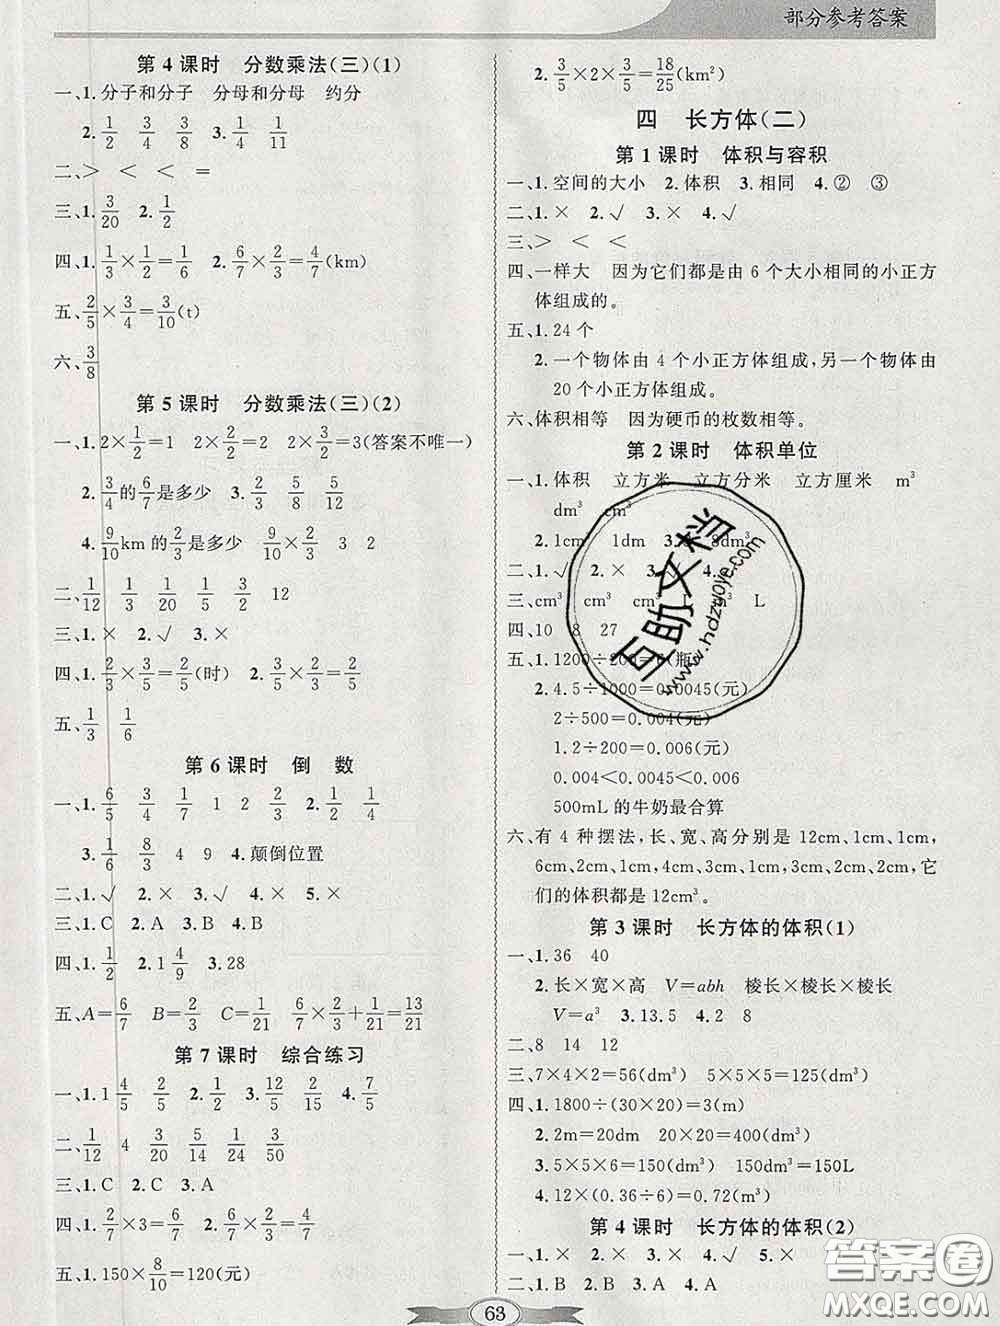 部分参考答案
第4课时 分数乘法(三)(1)
一、1.分子和分子 分母和分母 约分
2. 1/2 3/4 3/8 3. 1/4 1/11
二、> < < =
三、1. 3/20 2. 1/2
四、1. 1/3×1/2=1/6 2. 6/7×2/3=4/7(km)
五、2/5×3/4=3/10(t)
六、3/8
第5课时 分数乘法(三)(2)
一、1. 2×1/2=1 2×2/2=2 2×3/2=3(答案不唯一)
2. 3/4的6/7是多少 3. 2/3 5/8 5/12
4. 9/10km的2/3是多少 9/10×2/3 3 2
二、1/12 3/10 1/20 1/5 2/3 12
三、1.× 2.√ 3.×
四、1. 2/3×3/5=2/5(时) 2. 3/5×2/3=2/5
五、1/3 1/6
第6课时 倒 数
一、1. 6/5 3/4 1/7 1 2 2/3 2. 1/2 1/4
3. 1/6 8/3 4 9 4.颠倒位置
二、1.√ 2.× 3.√ 4.× 5.×
三、1.C 2.A 3.B 4.B
四、1. 1/2 2. 1 4/9 3. 28
五、A=6/7 B=2/3 C=1/21 6/7×2/3+1/21=13/21
第7课时 综合练习
一、1. 1 4/5 2/5 2. 1/2 3. 12/5 2/15 4. 7/5
二、1/12 4 3/20 5/14 1/24 3/50
三、1.C 2.C 3.A
四、1. 2/7×3=6/7 2. 6/7×2/3=4/7
五、1. 150×8/10=120(元)
2. 3/5×2×3/5=18/25(km²)
四 长方体(二)
第1课时 体积与容积
一、1.空间的大小 2.体积 3.相同 4.② ③
二、1.× 2.√ 3.× 4.√
三、> < <
四、一样大 因为它们都是由6个大小相同的小正方
体组成的。
五、1.24个
2.一个物体由4个小正方体组成,另一个物体由
20个小正方体组成。
六、体积相等 因为硬币的枚数相等。
第2课时 体积单位
一、1.体积 立方米 立方分米 立方厘米 m³
dm³ cm³
2.1cm 1dm 3. 8dm³
二、1.√ 2.× 3.√ 4.
三、cm³ cm³ L
四、10 8 27
五、1.1200÷200=6(瓶)
2.4.5÷1000=0.0045(元)
2÷500=0.004(元)
1.2÷200=0.006(元)
0.004<0.0045<0.006
500mL的牛奶最合算
六、有4种摆法,长、宽、高分别是12cm、1cm、1cm,
6cm、2cm、1cm,4cm、3cm、1cm,3cm、2cm、2cm,它
们的体积都是12cm³。
第3课时 长方体的体积(1)
一、1.36 40
2.长×宽×高 V=abh 棱长×棱长×棱长
V=a³ 3.13.5 4.2 8
二、8 14 12
三、7×4×2=56(dm³) 5×5×5=125(dm³)
四、1.1800÷(30×20)=3(m)
2.2m=20dm 20×20=400(dm³)
3.5×5×6=150(dm³) 150dm³=150L
4.12×(0.36÷6)=0.72(m³)
第4课时 长方体的体积(2)
一、1.× 2.× 3.× 4.√ 5.×
二、1.B 2.B 3.A 4.A
63
互助文档
www.hdzuoye.com
答案圈
MXQE.COM